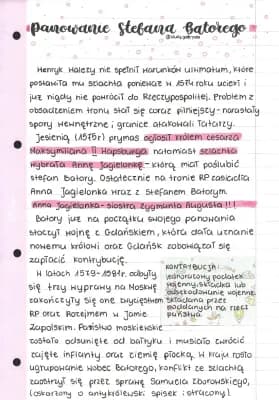 Panowanie Stefana Batorego
Henryk Walezy nie spełnił warunków ultimatum, które
postawiła mu szlachta ponieważ w 1574 roku uciekł i
już nigdy nie powrócił do Rzeczypospolitej. Problem z
obsadzeniem tronu stał się coraz pilniejszy - narastały
spory wewnętrzne i granice atakowali Tatarzy.
Jesienią (1575r) prymas ogłosił królem cesarza
Maksymiliana II Hapsburga natomiast szlachta
wybrała Annę Jagiellonkę - którą miał poślubić
Stefan Batory. Ostatecznie na tronie RP zasiadła
Anna Jagiellonka wraz z Stefanem Batorym.
Anna Jagiellonka - siostra Zygmunta Augusta !!!
Batory już na początku swojego panowania
stoczył wojnę z Gdańskiem, która dała uznanie
nowemu królowi oraz Gdańsk zobowiązał się
zapłacić kontrybucję.
W latach 1579-1581r. odbyły
się trzy wyprawy na Moskwę
zakończyły się one zwycięstwem
RP oraz Rozejmem w Jamie
Zapolskim. Państwo moskiewskie
KONTRYBUCJA:
jednorazowy podatek
wojenny, składka lub
odszkodowanie wojenne
składana przez
poddanych na rzecz
państwa.
zostało odsunięte od Bałtyku i musiało zwrócić
zajęte inflanty oraz ziemię płocką. W kraju rosło
ugrupowanie wobec Batorego, konflikt ze szlachtą
zaostrzył się przez sprawę Samuela Zborowskiego,
(oskarżony o antykrólewski spisek i stracony)